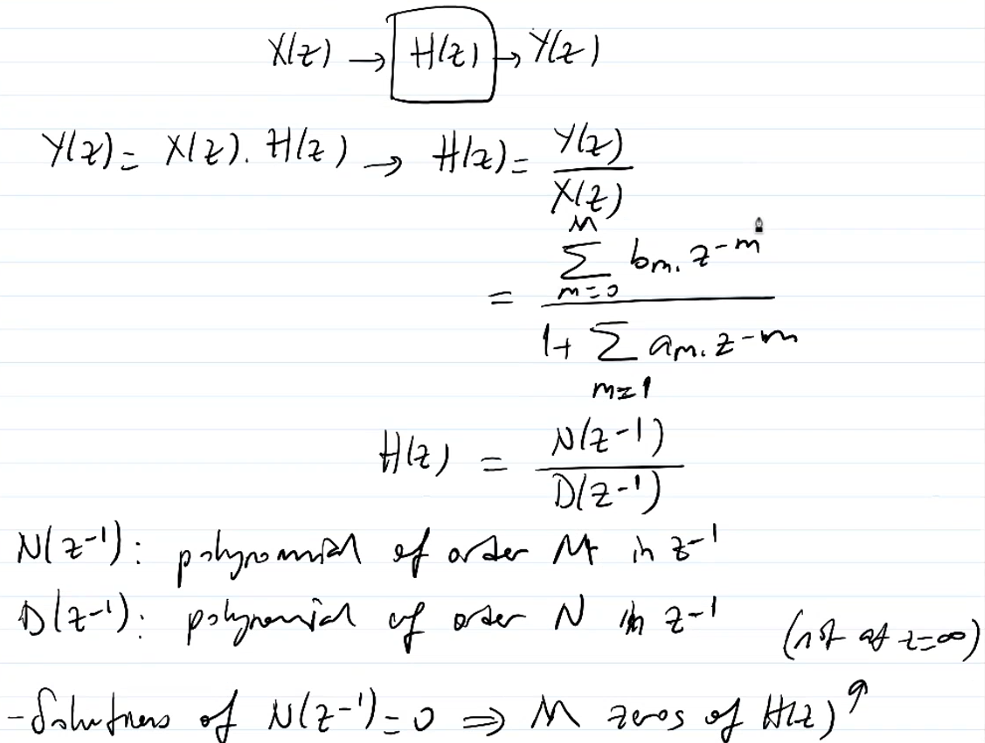 X(z) → H(z) → Y(z)
Y(z) = X(z). H(z) → H(z) = Y(z) / X(z)
= M ∑ m=0 bm. z-m / 1+ ∑ m=1 am. z-m
H(z) = N(z-1) / D(z-1)
N(z-1): polynomial of order M in z-1
D(z-1): polynomial of order N in z-1
(not at z=∞)
- Solutions of N(z-1)=0 ⇒ M zeros of H(z)